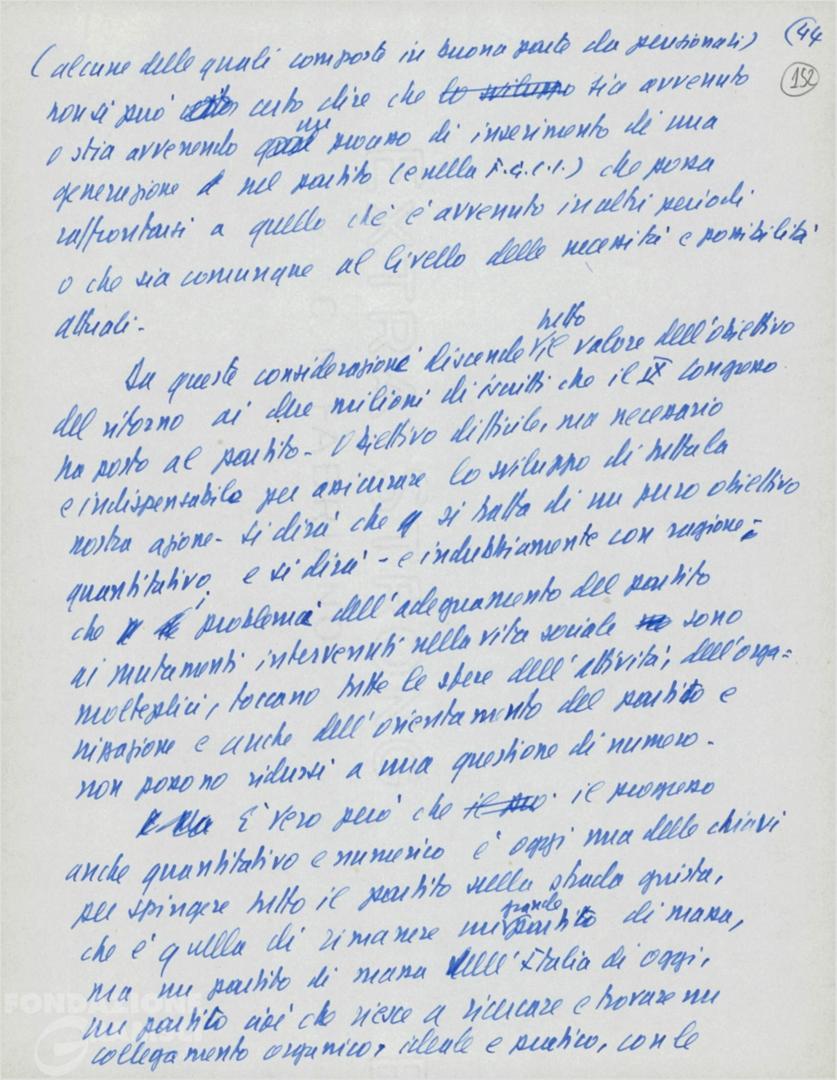 44
152
(alcune delle quali composte in buona parte da pensionati)
non si può certo dire che lo sviluppo sia avvenuto
o stia avvenendo un processo di inserimento di una
generazione nel partito (e nella F.G.C.I.) che possa
raffrontarsi a quello che è avvenuto in altri periodi
o che sia comunque al livello delle necessità e possibilità
attuali -
Da queste considerazioni discende tutto il valore dell'obiettivo
del ritorno ai due milioni di iscritti che il IX Congresso
ha posto al partito - Obiettivo difficile, ma necessario
e indispensabile per assicurare lo sviluppo di tutta la
nostra azione - si dirà che si tratta di un puro obiettivo
quantitativo, e si dirà - e indubbiamente con ragione -
che i problemi dell'adeguamento del partito
ai mutamenti intervenuti nella vita sociale sono
molteplici, toccano tutte le sfere dell'attività, dell'orga=
nizzazione e anche dell'orientamento del partito e
non possono ridursi a una questione di numero -
È vero però che il progresso
anche quantitativo e numerico è oggi una delle chiavi
per spingere tutto il partito sulla strada giusta,
che è quella di rimanere un grande partito di massa,
ma un partito di massa dell'Italia di oggi,
un partito cioè che riesce a ricercare e trovare un
collegamento organico, ideale e pratico, con le
FONDAZIONE
Gramsci